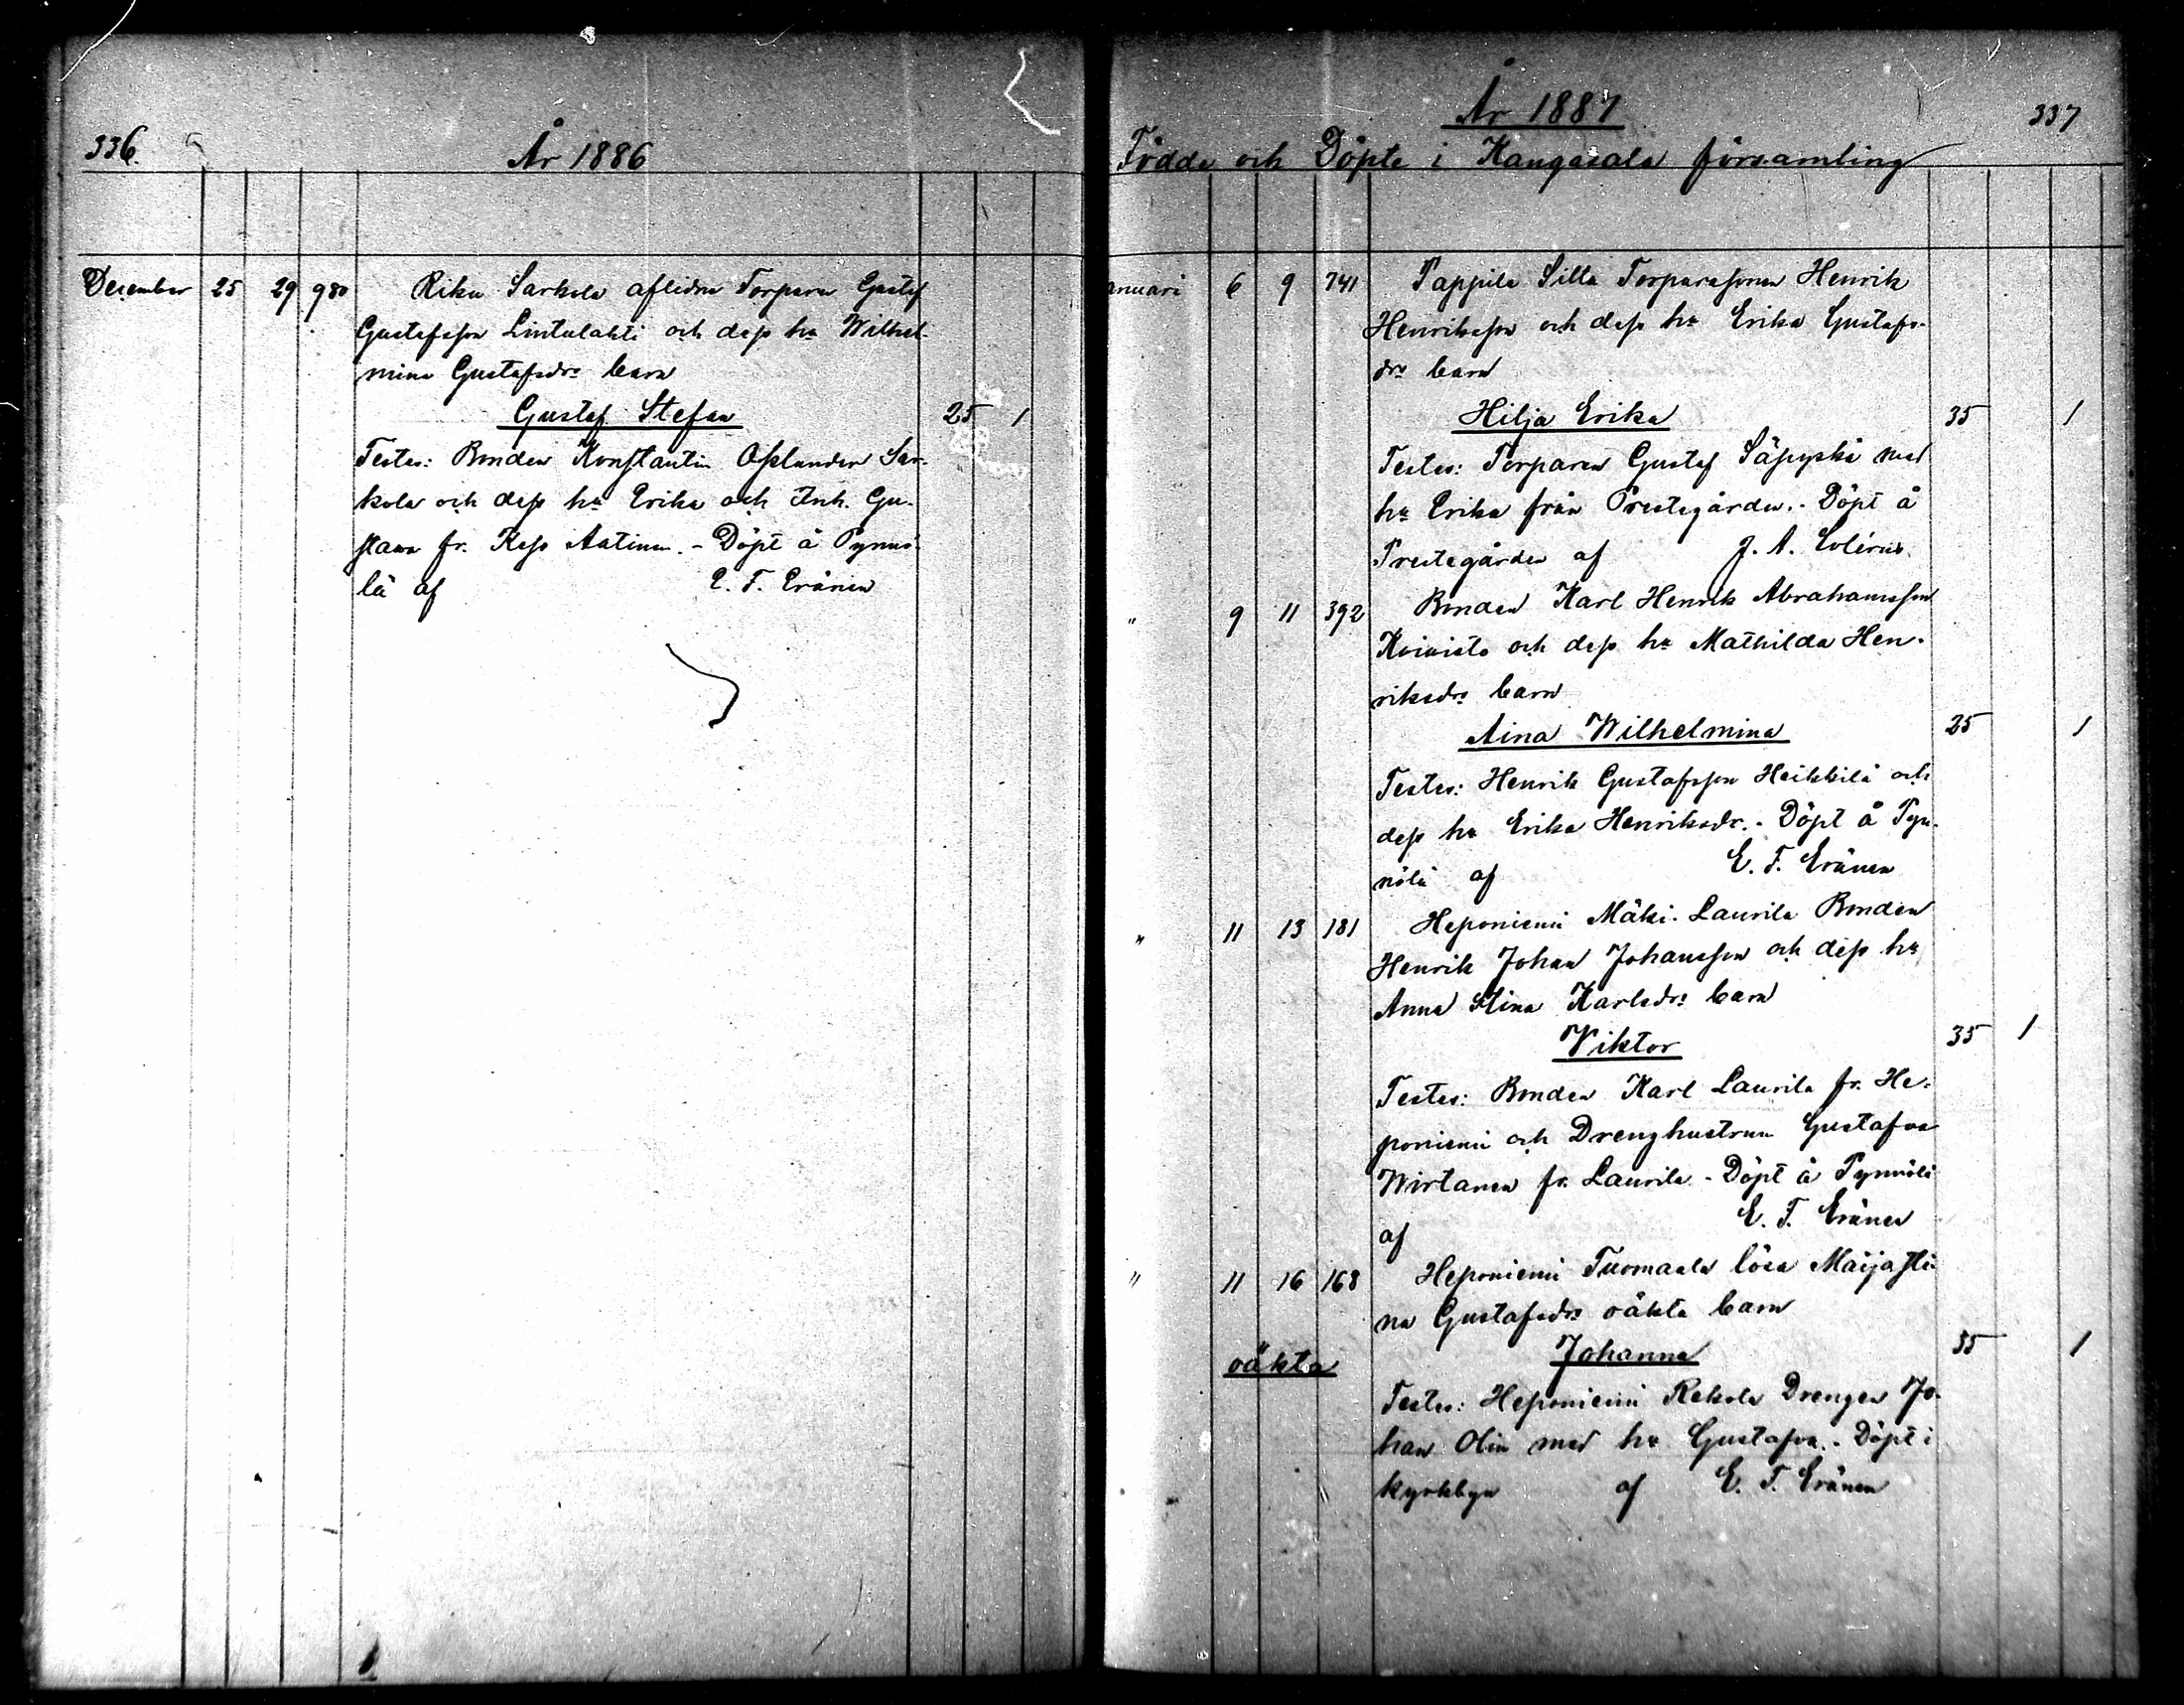 336.
År 1886
December 25 29 980 Riku Sarkola aflidne Torparen Gustaf
Gustafsson Lintulahti och dess hu Wilhel-
mina Gustafsdrs barn
Gustaf Stefan 25 1
Testes: Bonden Konstantin Osklander Sar-
kola och dess hu Erika och Inh. Gu-
stava fr. Keso Aatinen. - Döpt å Pynnö-
lä af E. F. Eränen
År 1887
337
Födde och Döpte i Kangasala församling
anuari 6 9 741 Pappila Silta Torparesonen Henrik
Henriksson och dess hu Erika Gustafs-
drs barn
Hilja Erika 35 1
Testes: Torparen Gustaf Säpyskä med
hu Erika från Prestegården. - Döpt å
Prestegården af J. A.
" 9 11 392 Bonden Karl Henrik Abrahamsson
Koivisto och dess hu Mathilda Hen-
riksdrs barn
Aina Wilhelmina 25 1
Testes: Henrik Gustafsson Heikkilä och
dess hu Erika Henriksdr. - Döpt å Pyn-
nölä af E. F. Eränen
" 11 13 181 Heponiemi Mäki-Laurila Bonden
Henrik Johan Johansson och dess hu
Anna Stina Karlsdrs barn
Viktor 35 1
Testes: Bonden Karl Laurila fr. He-
poniemi och Drenghustrun Gustafva
Wirtanen fr. Laurila - Döpt å Pynnölä
af E. F. Eränen
" 11 16 168 Heponiemi Tuomaala lösa Maijasti-
na Gustafsdrs oäkta barn
oäkta Johanna 35 1
Testes: Heponiemi Rekola Drengen Jo-
han Olin med hu Gustafva. - Döpt i
Kyrkbyn af E. F. Eränen